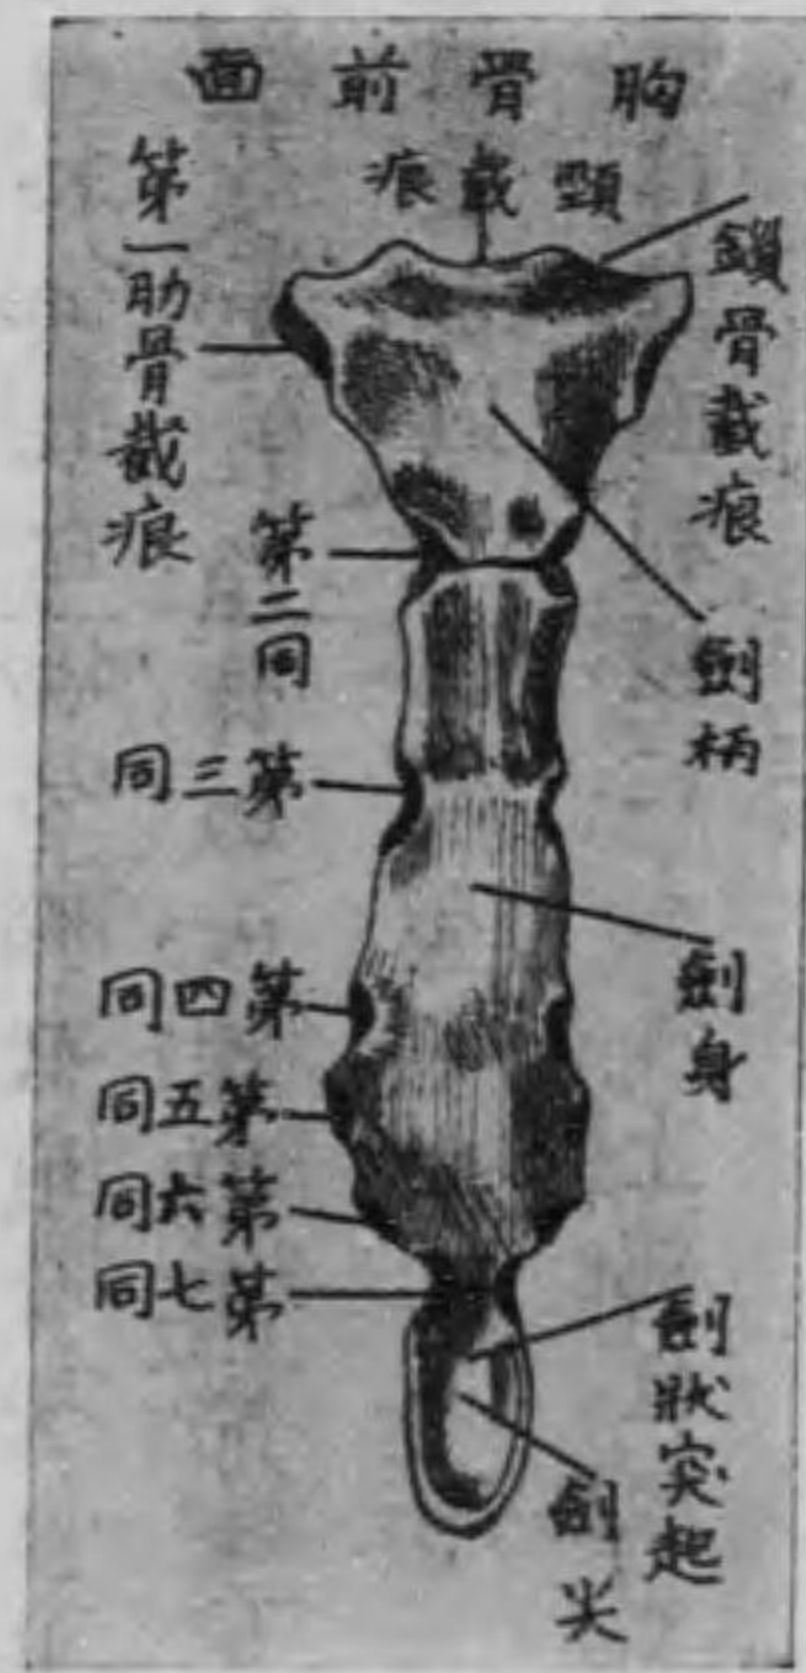 胸骨前面
頸截痕
鎖骨截痕
第一肋骨截痕
第二同
劍柄
第三同
劍身
第四同
第五同
第六同
第七同
劍狀突起
劍尖